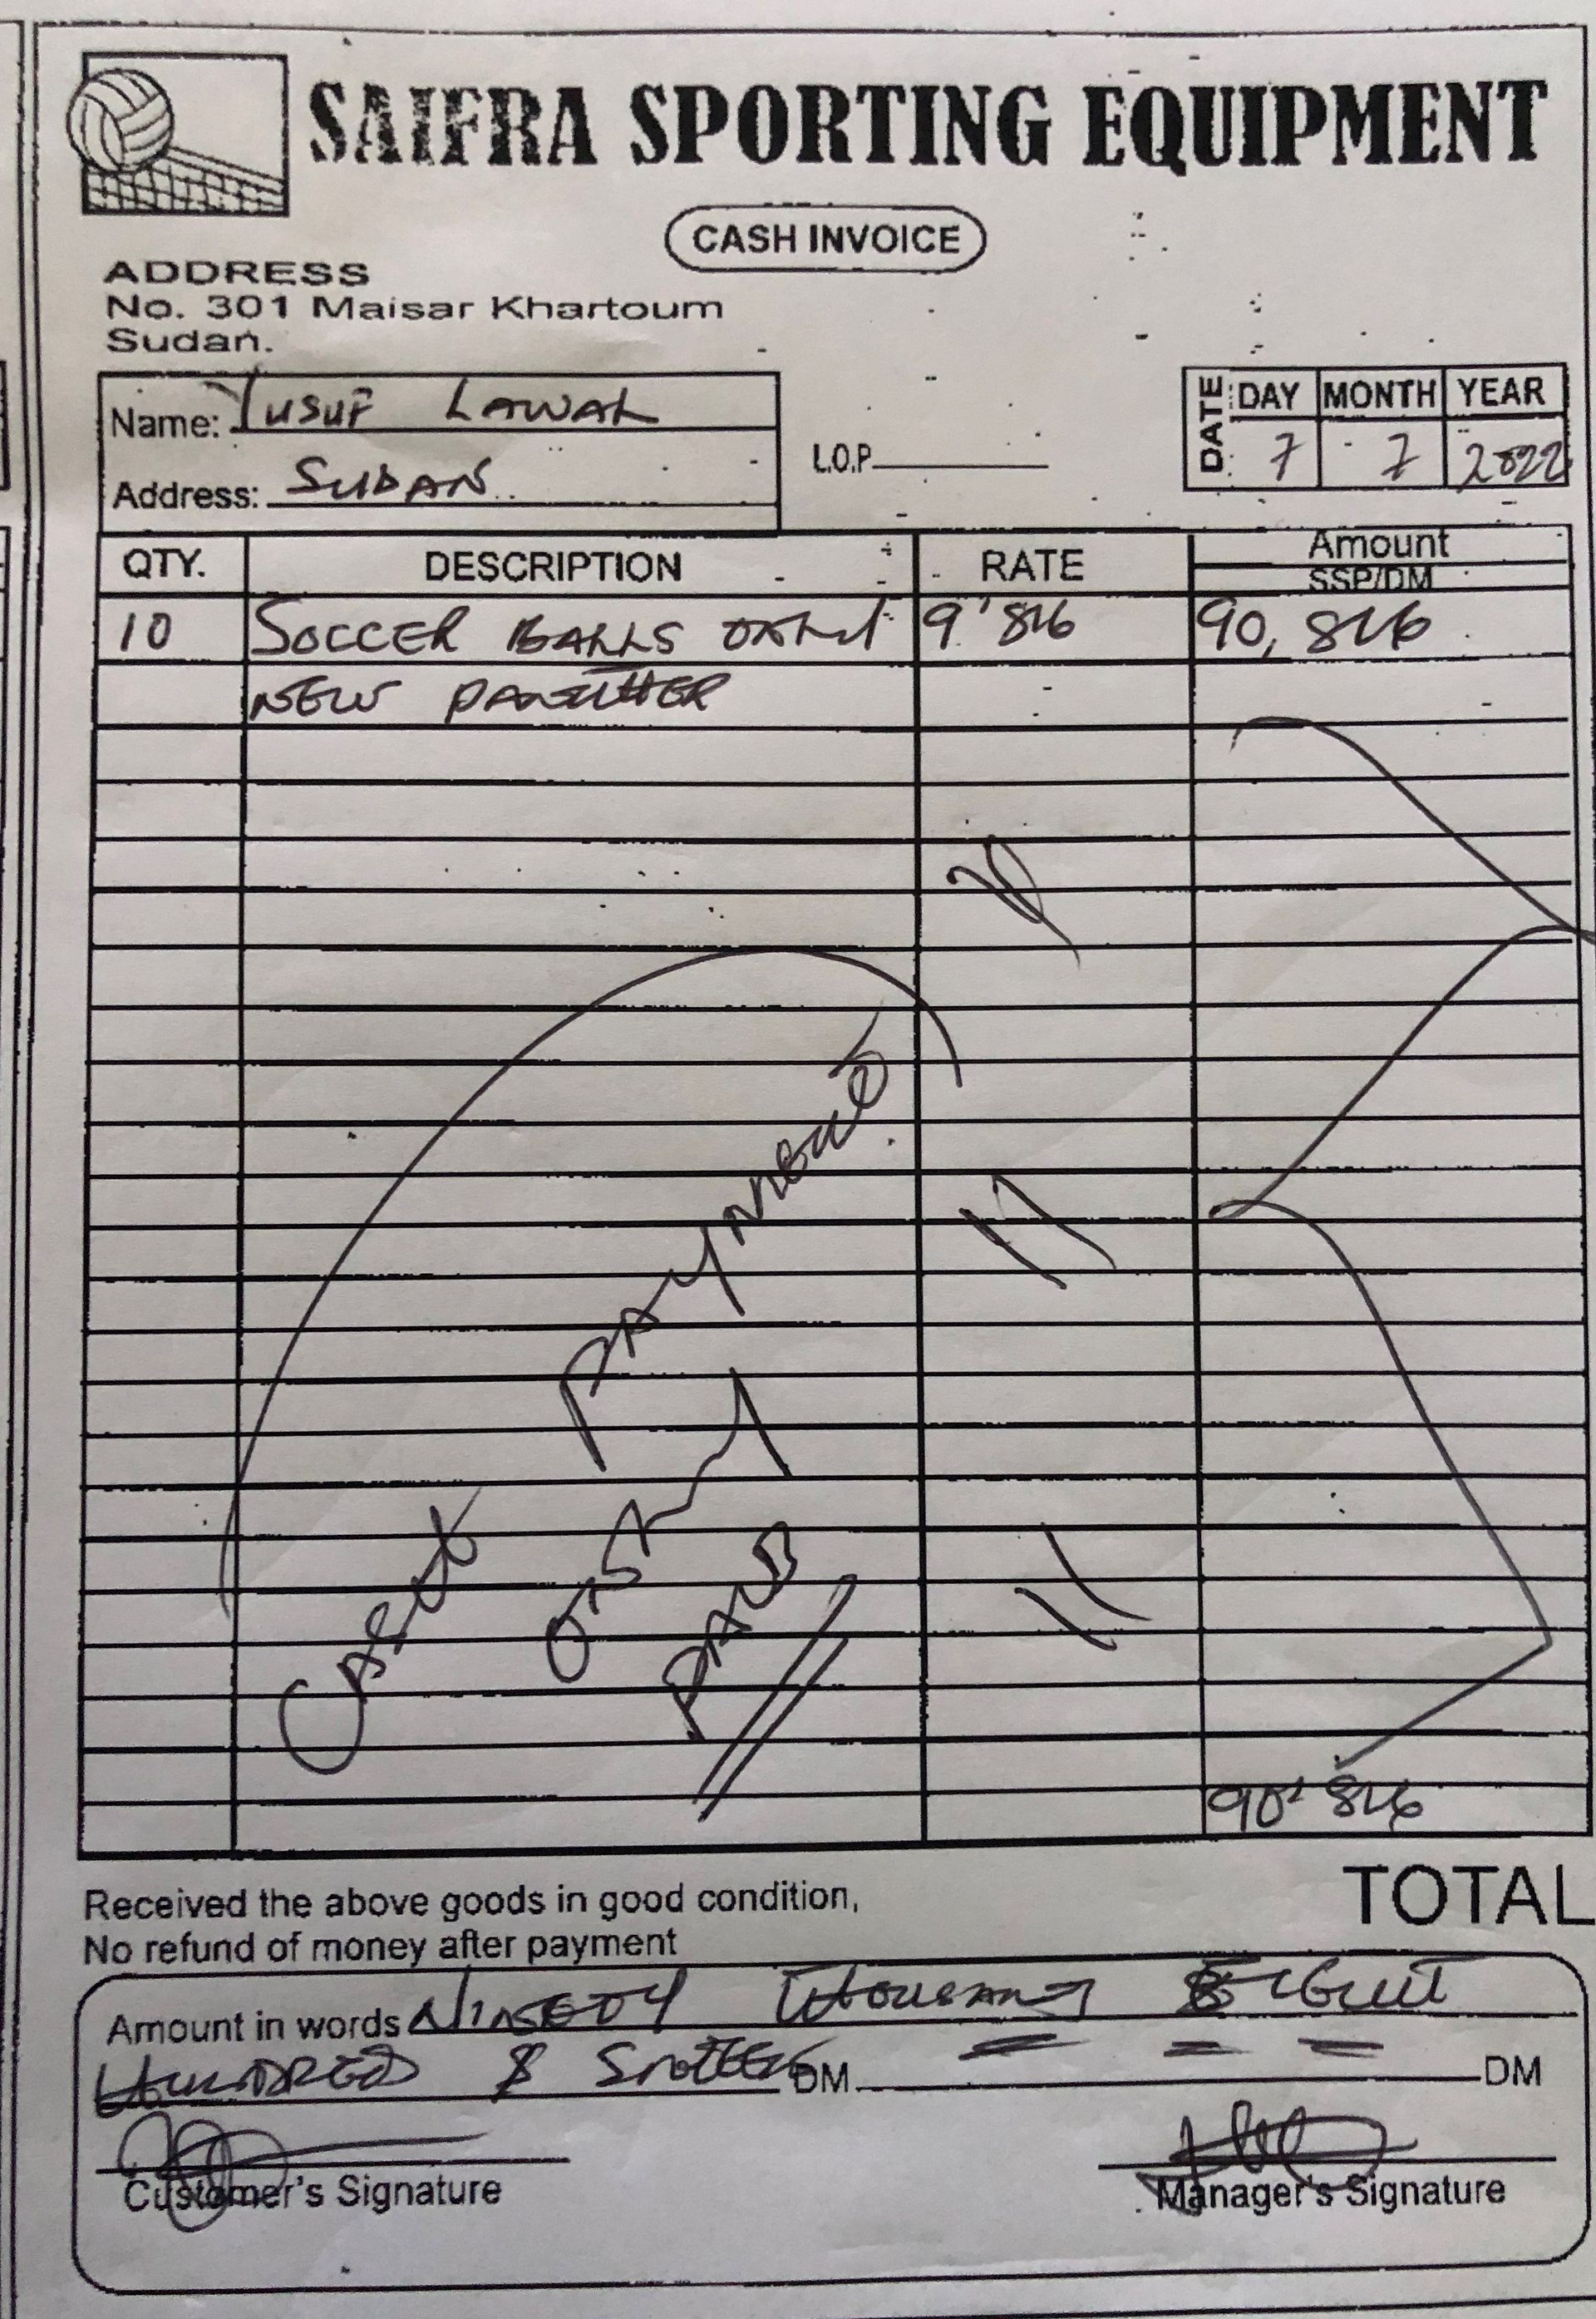 SAIFRA SPORTING EQUIPMENT
CASH INVOICE
ADDRESS
No. 301 Maisar Khartoum
Sudan.
Name: Yusuf LAWAL
Address: SUDAN
L.O.P
DATE DAY MONTH YEAR
7 7 2022
QTY. DESCRIPTION RATE Amount
SSP/DM
10 SOCCER BALLS 9'816 90,816
NEW PANTHER
CASH PAYMENT
ONLY
PAID
90'816
TOTAL
Received the above goods in good condition,
No refund of money after payment
Amount in words NINETY THOUSAND EIGHT
HUNDRED & SIXTEEN DM DM
Customer's Signature Manager's Signature